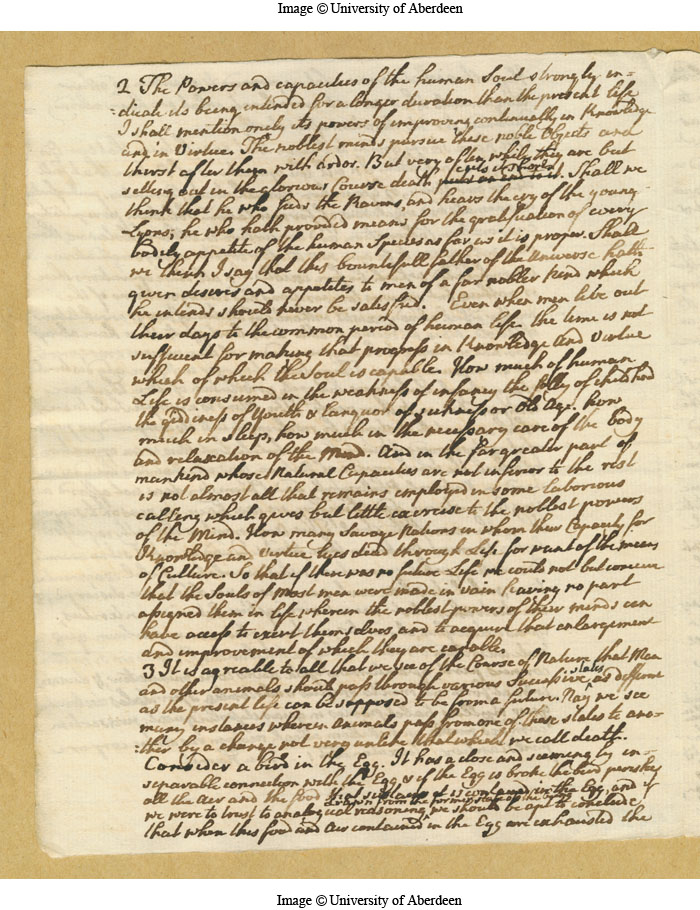 Image © University of Aberdeen
2 The Powers and capacities of the human Soul strongly in=
=dicate its being intended for a longer duration than the present life
I shall mention onely its powers of improving continually in Knowledge
and in Virtue. The noblest minds pursue these noble Objects and
thirst after them with ardor. But very often while they are but
cuts it short
setting out in the glorious Course death puts an end to it. Shall we
think that he who feeds the Ravens, and hears the cry of the young
Lyons; he who hath provided means for the gratification of every
bodily appetite of the human Species as far as it is proper. Shall
we think I say that this bountifull father of the Universe hath
given desires and appetites to men of a far nobler kind which
he intends should never be satisfied. Even when men live out
their days to the common period of human life the time is not
sufficient for making that progress in Knowledge and Virtue
which of which the Soul is capable. How much of human
Life is consumed in the weakness of infancy the folly of childhood
the gidiness of Youth & languor of sickness or Old Age. how
much in sleep, how much in the necessary care of the body
and relaxation of the Mind. And in the far greater part of
mankind whose Natural Capacities are not inferior to the rest
is not almost all that remains employed in some laborious
calling which gives but little exercise to the noblest powers
of the Mind. How many Savage Nations in whom their Capacity for
Knowledge and Virtue lyes dead through Life for want of the means
of Culture. So that if there was no future Life we could not but conceive
that the Souls of most men were made in vain having no part
assigned them in life, wherein the noblest powers of their minds can
have access to exert themselves, and to acquire that enlargement
and improvement of which they are capable.
3 It is agreable to all that we see of the Course of Nature that Men
states
and other animals should pass through various Successive, as different
as the present life can be supposed to be from a future. Nay we see
many instances wherein animals pass from one of these states to ano=
=ther by a change not very unlike that which we call death.
Consider a bird in the Egg. It has a close and seemingly in=
separable connection with the Egg & if the Egg is broke the bird perishes
all the Aer and the food that sustains it is contained in the Egg, and if
drawn from the former state of the
we were to trust to analogical reasoning we should be apt to conclude
that when this food and Aer contained in the Egg are exhausted the
Image © University of Aberdeen